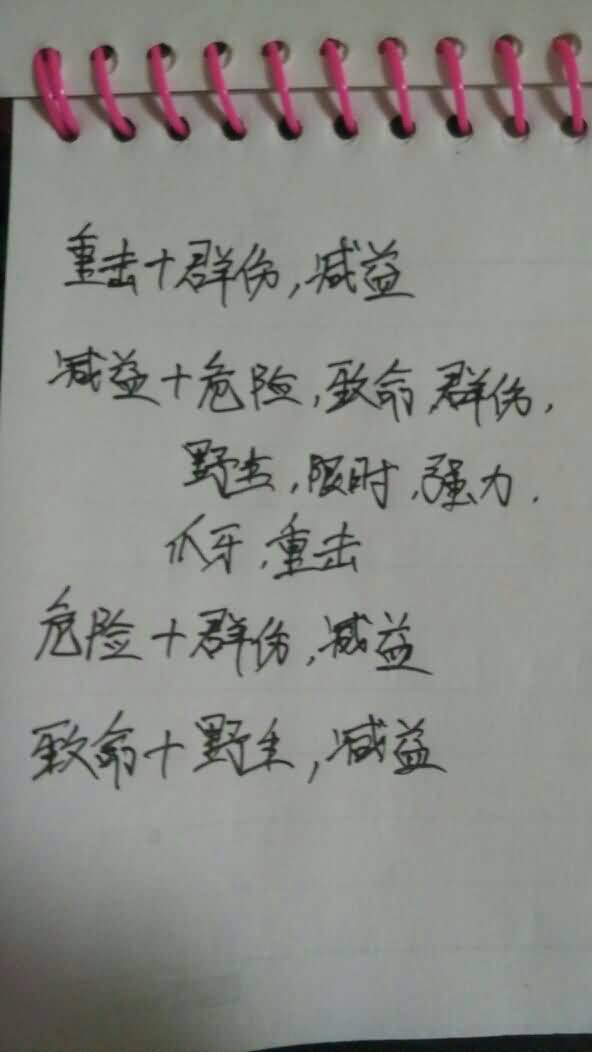 重击+群伤,减益
减益+危险,致命,群伤,
野生,限时,强力,
爪牙,重击
危险+群伤,减益
致命+野生,减益